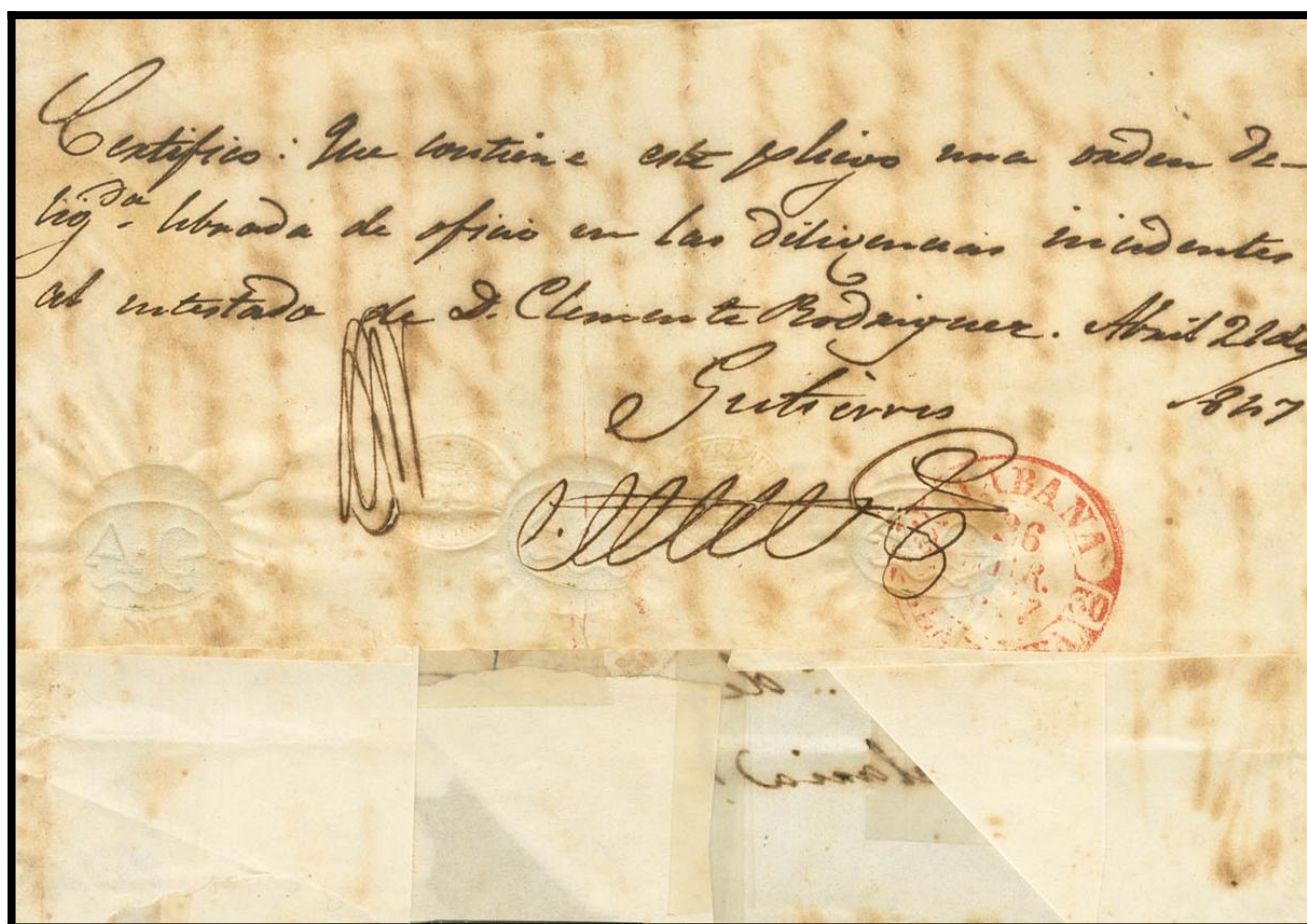 Certifico: Que contiene este pliego una orden de-
lig.da librada de oficio en las dilivencias incidentes
al intestado de D. Clemente Rodriguez. Abril 21 de
Gutierres 1847
A.G
HABANA
26
7
de